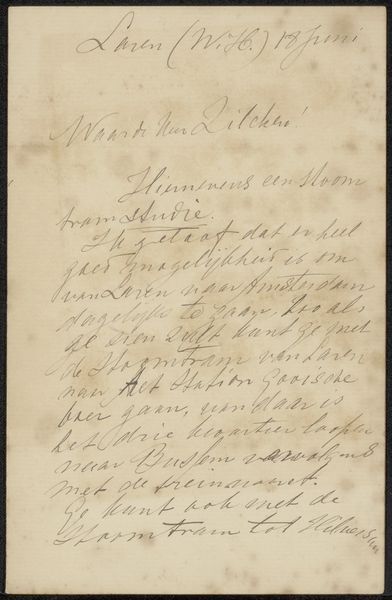 Laren (N.H.) 18 Juni
Waarde Heer Zilcken!
Hiernevens een stoom
tram studie.
Ik geloof dat er heel
goed mogelijkheid is om
van Laren naar Amsterdam
dagelijks te gaan, zoo als
ge zien zult kunt ge met
de Stoomtram van Laren
naar het Station Gooische
boer gaan, van daar is
het drie kwartier loopen
naar Bussem vervolgens
met de trein
Ge kunt ook met de
Stoomtram tot Hilversum